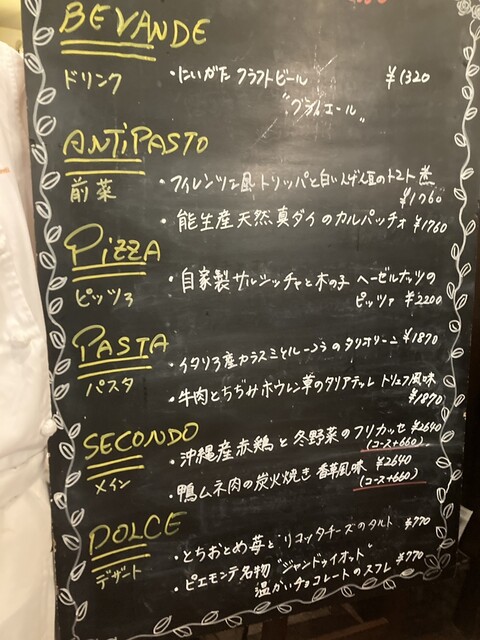 BEVANDE
ドリンク
・にいがた クラフトビール ¥1320
"グライエール"
ANTiPASTO
前菜
・フィレンツェ風トリッパと白いんげん豆のトマト煮
¥1060
・能生産天然真ダイのカルパッチョ ¥1760
PiZZA
ピッツァ
・自家製サルシッチャと木の子 ヘーゼルナッツの
ピッツァ ¥2200
PASTA
パスタ
・イタリア産カラスミとルーコラのタリオリーニ ¥1870
・牛肉とちぢみホウレン草のタリアテッレ トリュフ風味
¥1870
SECONDO
メイン
・沖縄産赤鶏と冬野菜のフリカッセ ¥2640
(コース+660)
・鴨ムネ肉の炭火焼き 香草風味 ¥2640
(コース+660)
DOLCE
デザート
・とちおとめ苺とリコッタチーズのタルト ¥770
・ピエモンテ名物"ジャンドゥイオット"
温かいチョコレートのスフレ ¥770